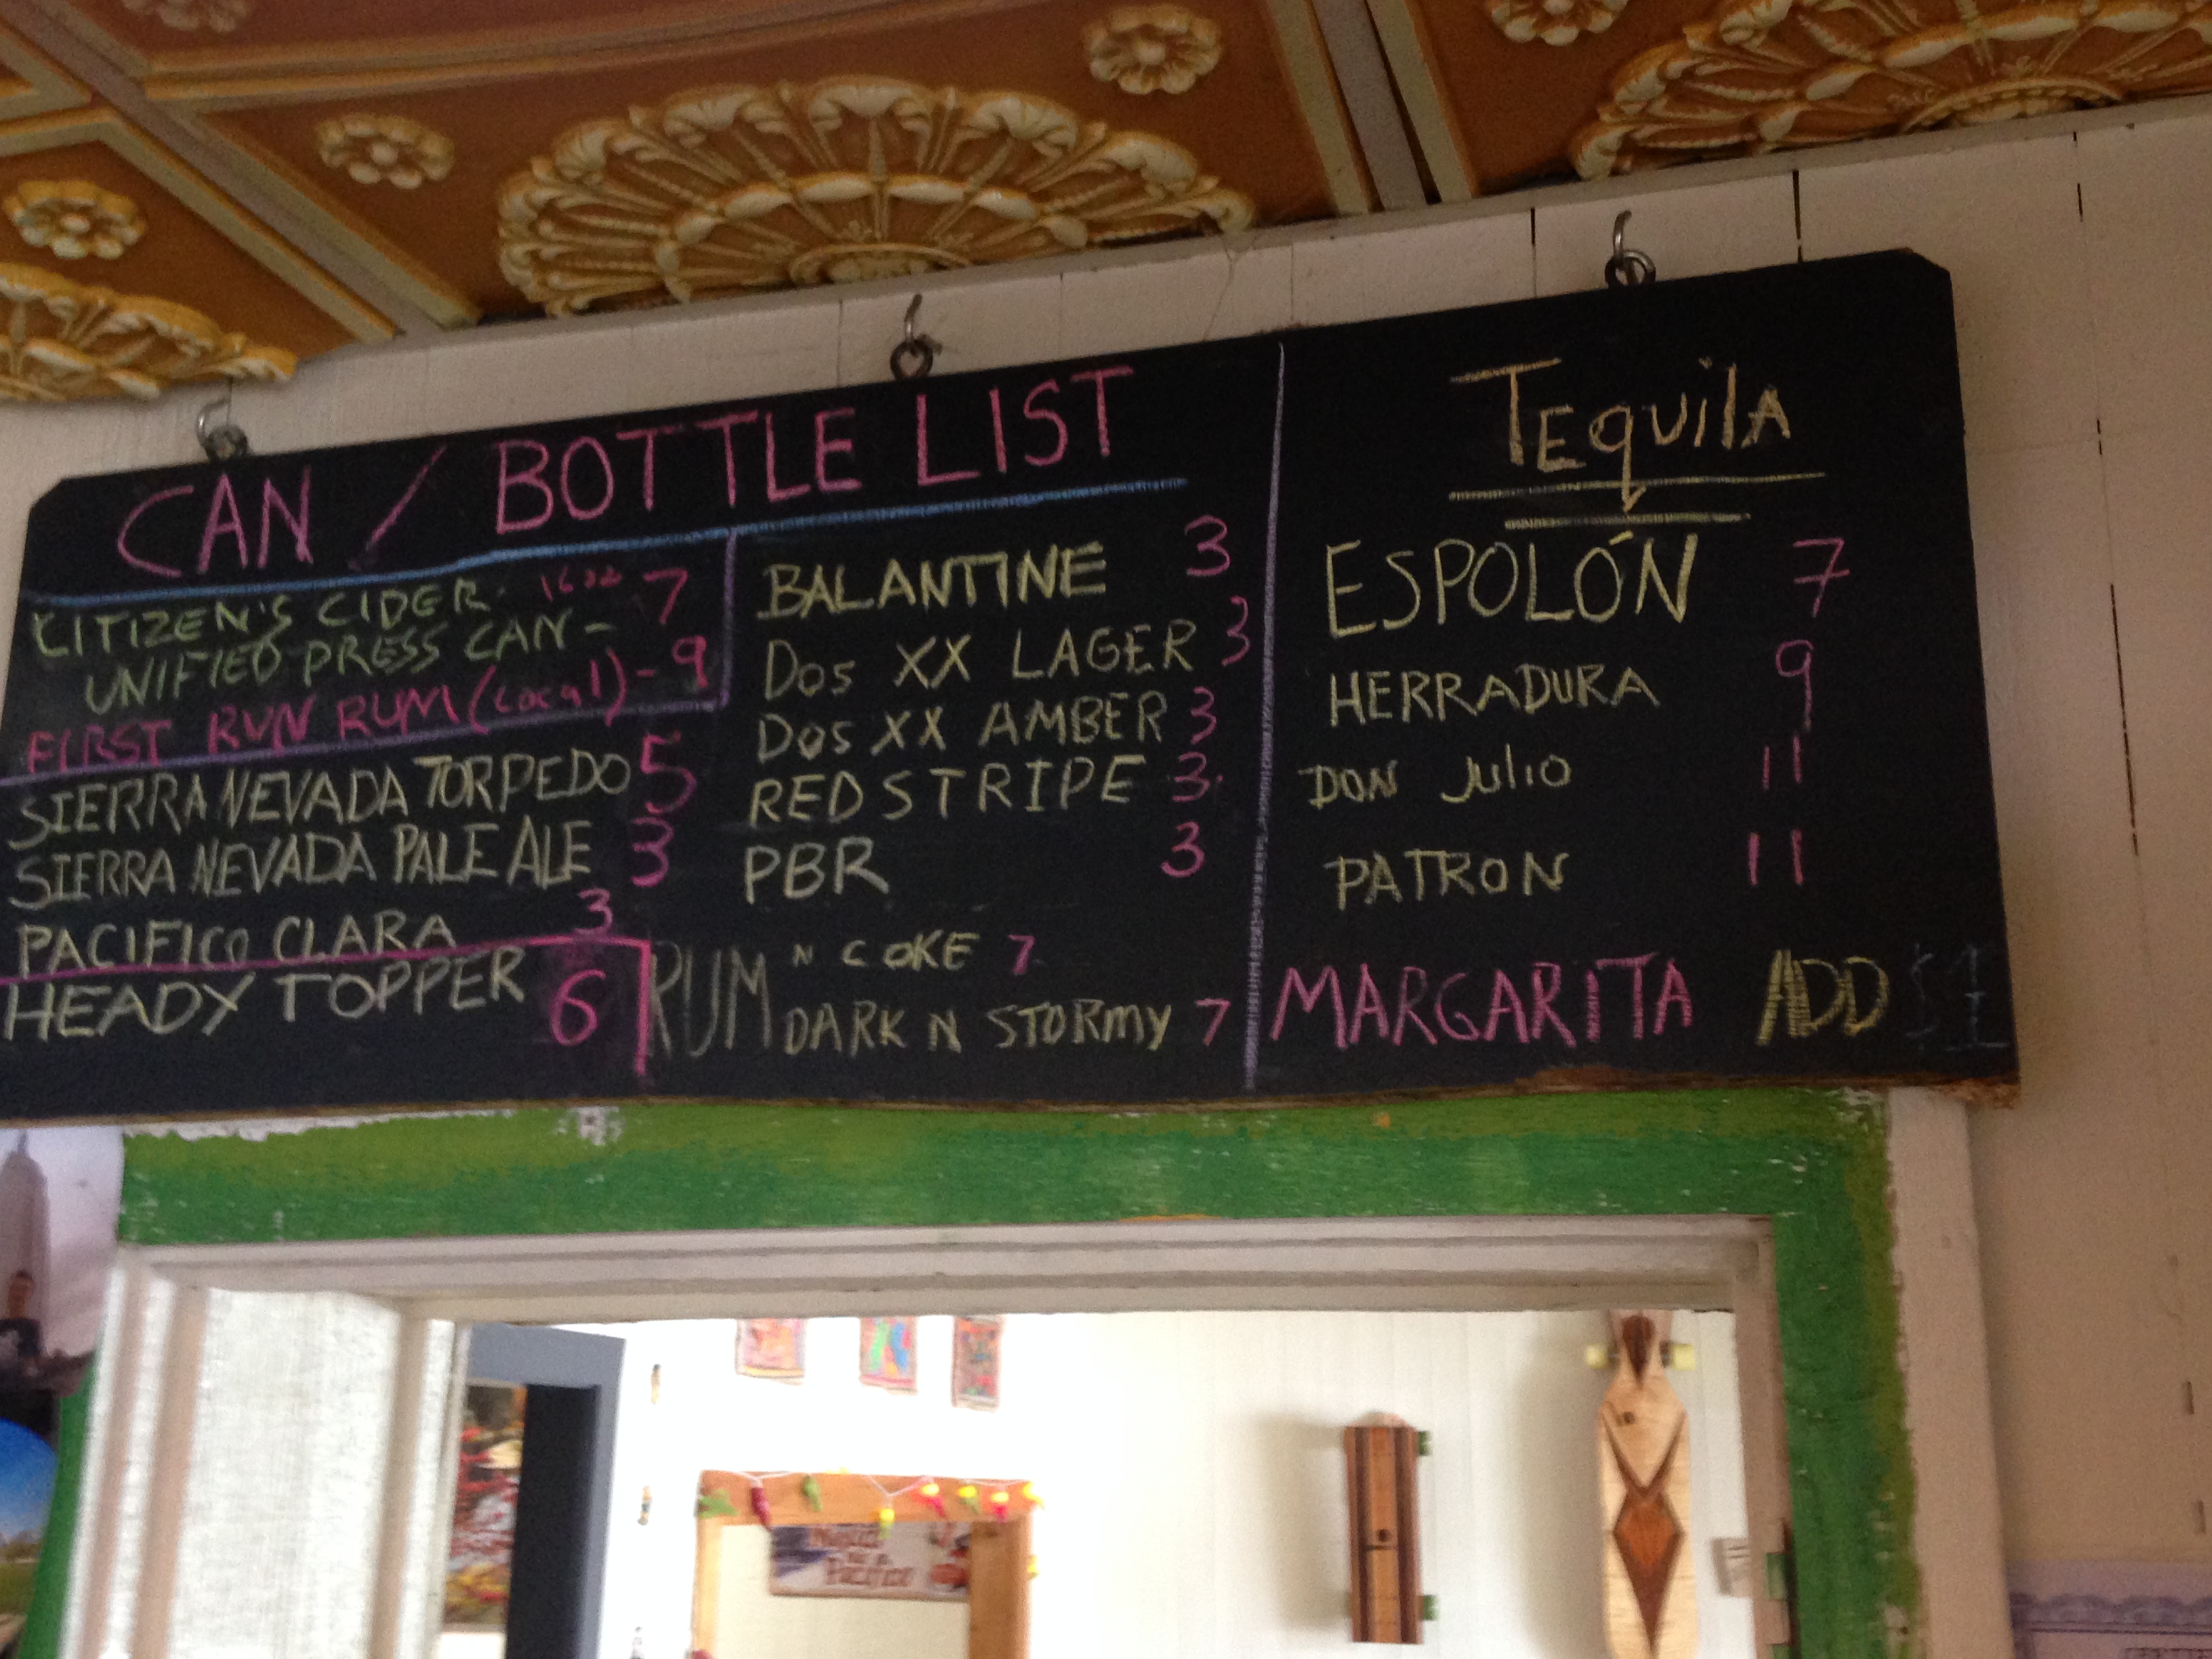 CAN / BOTTLE LIST
CITIZEN'S CIDER. 16oz 7
UNIFIED PRESS CAN -
FIRST RUN RUM (Local) - 9
SIERRA NEVADA TORPEDO 5
SIERRA NEVADA PALE ALE 3
PACIFICO CLARA 3
HEADY TOPPER 6
BALANTINE 3
Dos XX LAGER 3
Dos XX AMBER 3
RED STRIPE 3
PBR 3
RUM N COKE 7
DARK N STORMY 7
TEquilA
ESPOLÓN 7
HERRADURA 9
DON Julio 11
PATRON 11
MARGARITA ADD $1